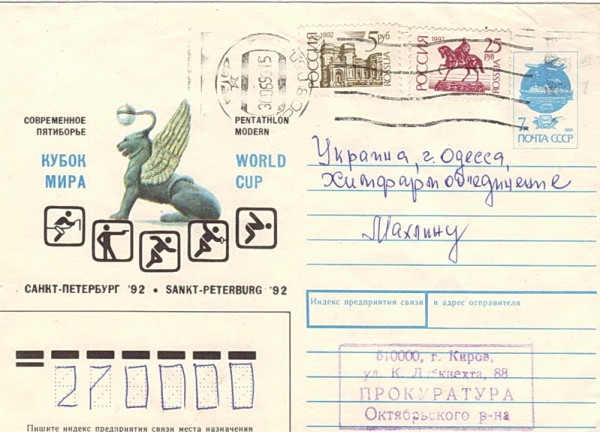 РОССИЯ 1992 5 руб ROSSIJA
РОССИЯ 1992 25 руб ROSSIJA
7к ПОЧТА СССР
СОВРЕМЕННОЕ ПЯТИБОРЬЕ
PENTATHLON MODERN
КУБОК МИРА
WORLD CUP
САНКТ-ПЕТЕРБУРГ '92 • SANKT-PETERBURG '92
Украина, г. Одесса,
Химфармобъединение
Махлину
Индекс предприятия связи и адрес отправителя
610000, г. Киров,
ул. К. Либкнехта, 88
ПРОКУРАТУРА
Октябрьского р-на
270000
Пишите индекс предприятия связи места назначения